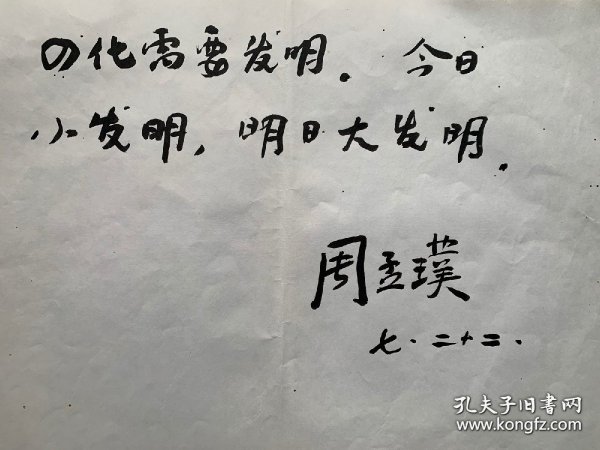 四化需要发明. 今日
小发明, 明日大发明.
周孟璞
七.二十二.
孔夫子旧書网
www.kongfz.com